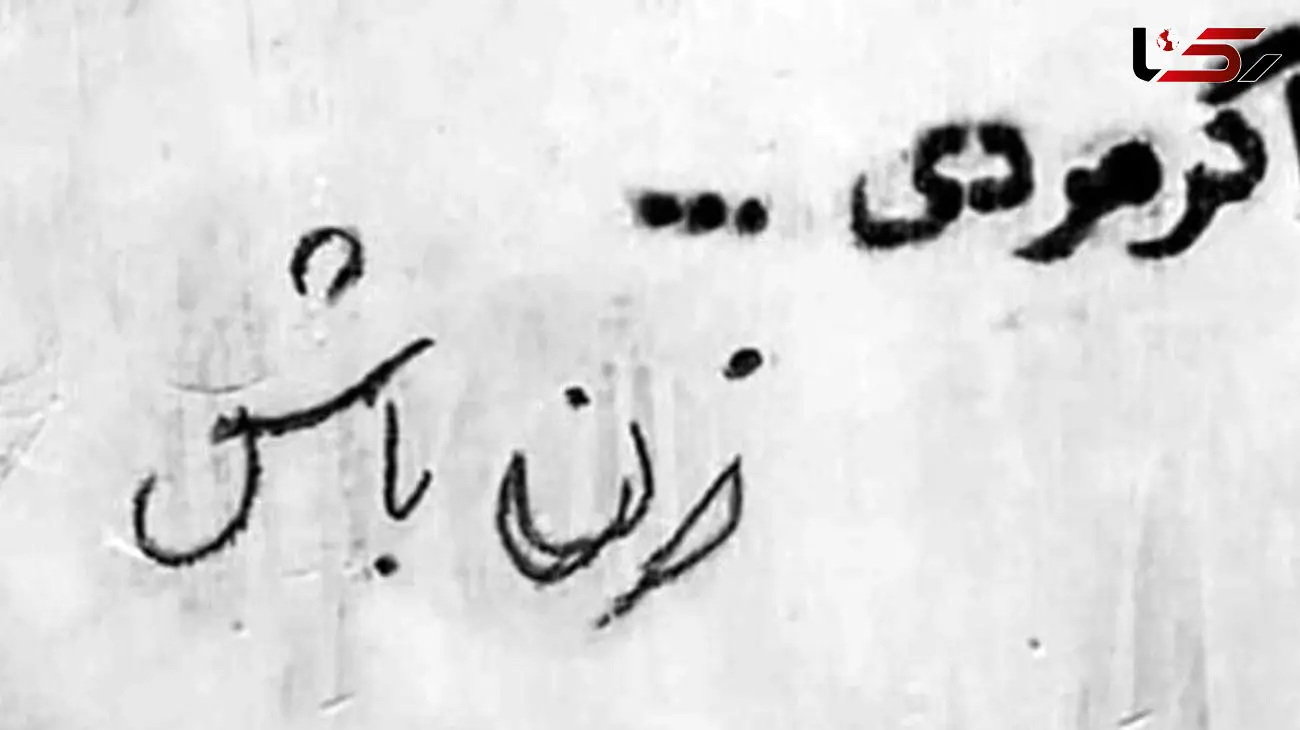 رکنا
اگر مردی ...
زن باش